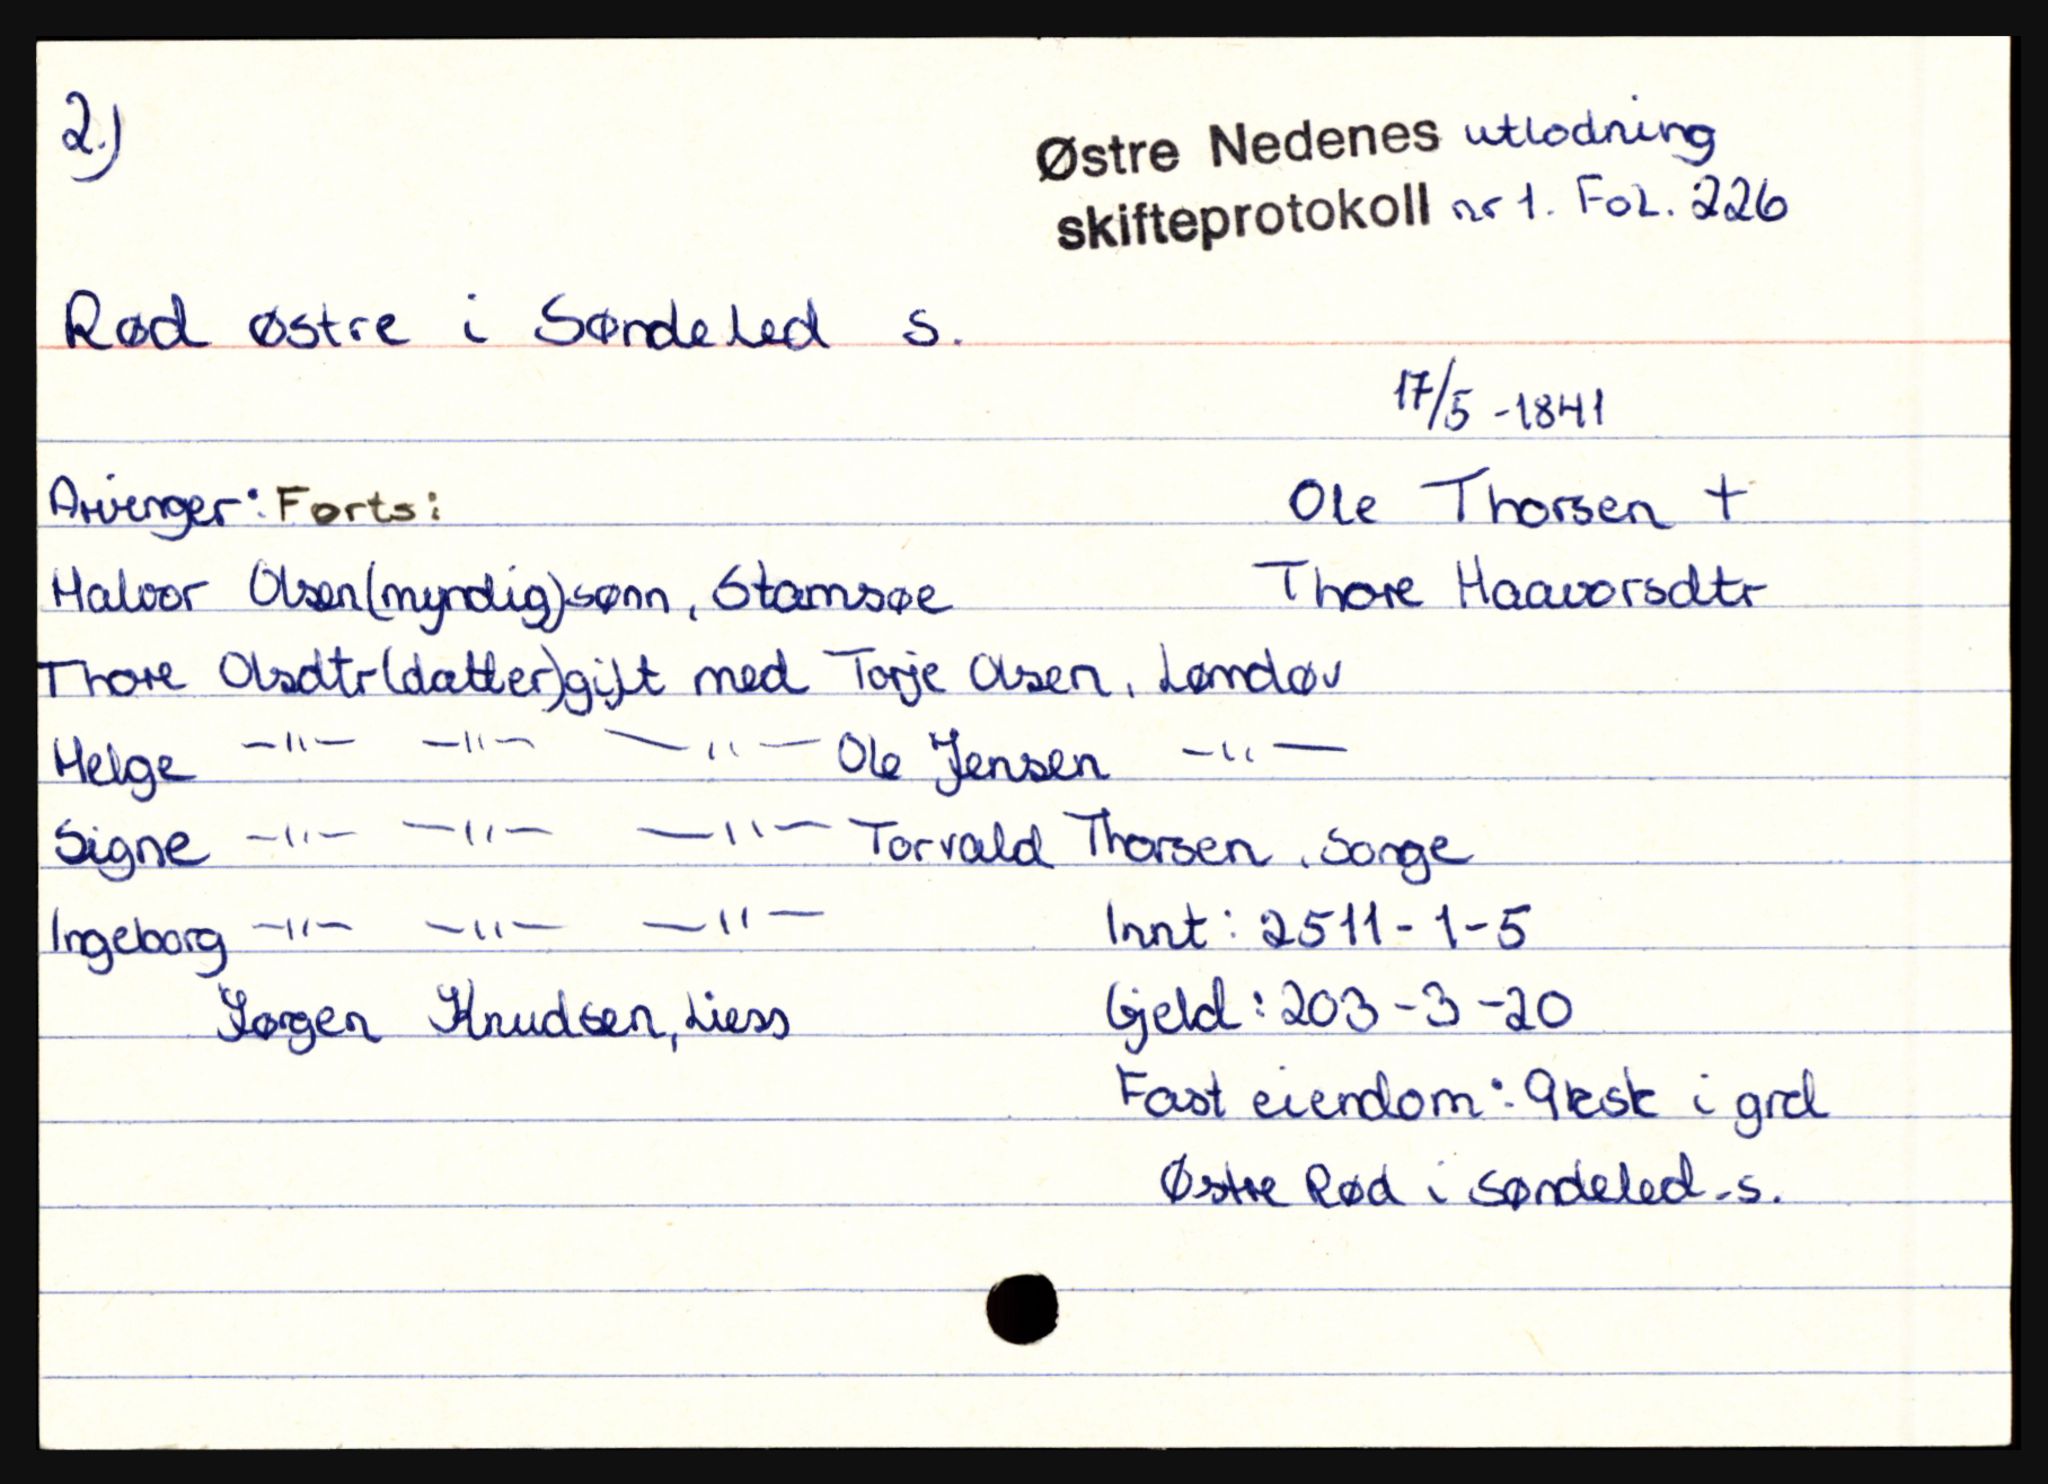 2.)
Østre Nedenes utlodning
skifteprotokoll nr 1. Fol. 226
Rød østre i Søndeled s.
17/5 -1841
Arvinger: Forts:
Ole Thorsen †
Halvor Olsen (myndig) sønn, Stamsøe
Thore Haavorsdtr
Thore Olsdtr (datter) gift med Torje Olsen, Lømdøv
Helge -"- -"- -"- Ole Jensen -"-
Signe -"- -"- -"- Torvald Thorsen, Songe
Ingeborg -"- -"- -"-
Innt: 2511-1-5
Jørgen Knudsen, Liess
Gjeld: 203-3-20
Fast eiendom: 9ksk i grd
Østre Rød i Søndeled-s.